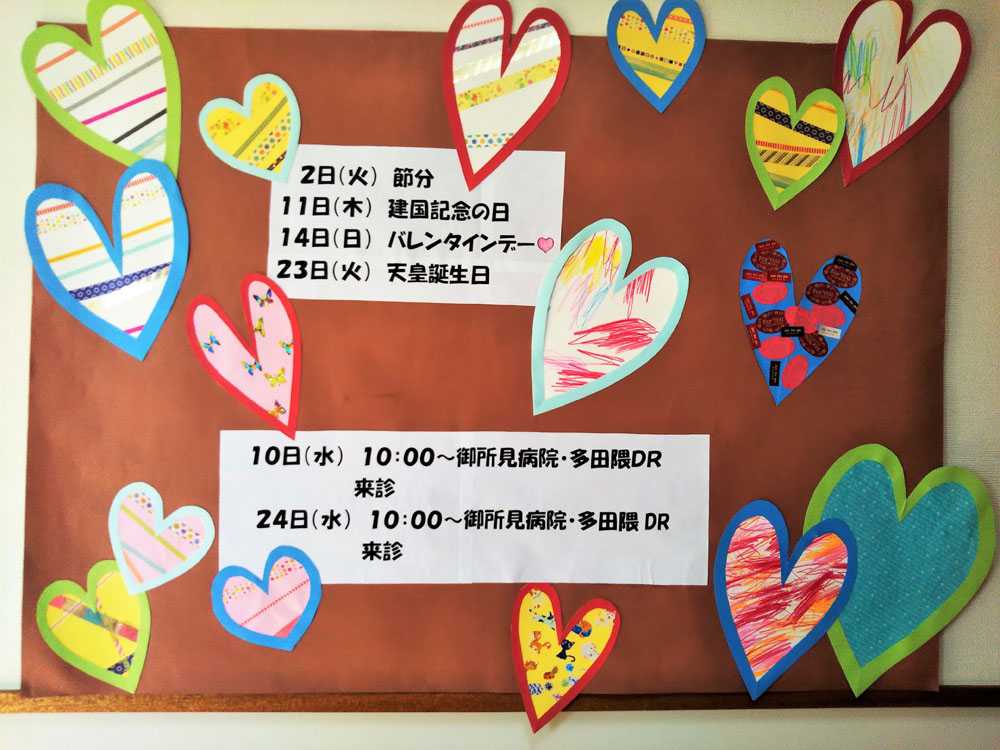 2日(火) 節分
11日(木) 建国記念の日
14日(日) バレンタインデー
23日(火) 天皇誕生日
10日(水) 10:00～御所見病院・多田隈DR
来診
24日(水) 10:00～御所見病院・多田隈 DR
来診